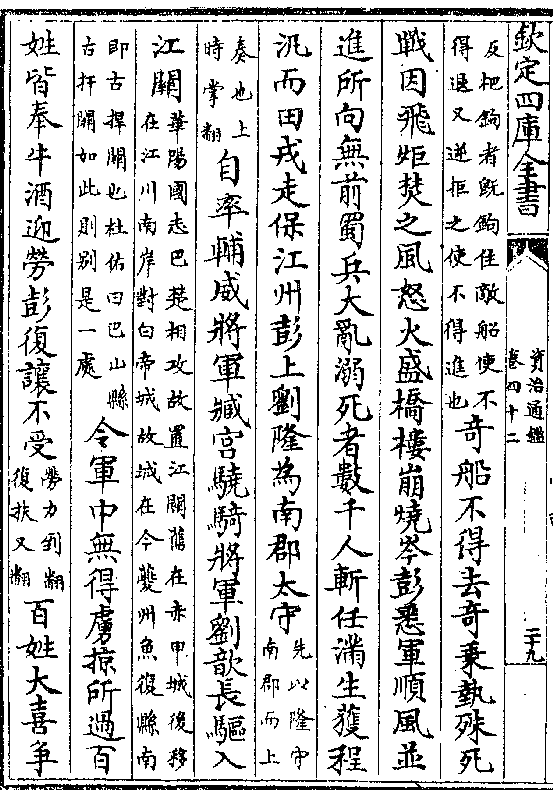 欽定四庫全書
資治通鑑
卷四十二
二十九
反杷鉤者既鉤住敵船使不
得退又逆拒之使不得進也
奇船不得去奇乗埶殊死
戰因飛炬焚之風怒火盛橋樓崩燒岑彭悉軍順風並
進所向無前蜀兵大亂溺死者數千人斬任滿生獲程
汎而田戎走保江州彭上劉隆為南郡太守
先以隆守
南郡而上
奏也上
時掌翻
自率輔威將軍臧宫驍騎將軍劉歆長驅入
江關
華陽國志巴楚相攻故置江關舊在赤甲城後移
在江川南岸對白帝城故城在今夔州魚復縣南
即古捍關也杜佑曰巴山縣
古扞關如此則别是一處
令軍中無得虜掠所過百
姓皆奉牛酒迎勞彭復讓不受
勞力到翻
復扶又翻
百姓大喜爭